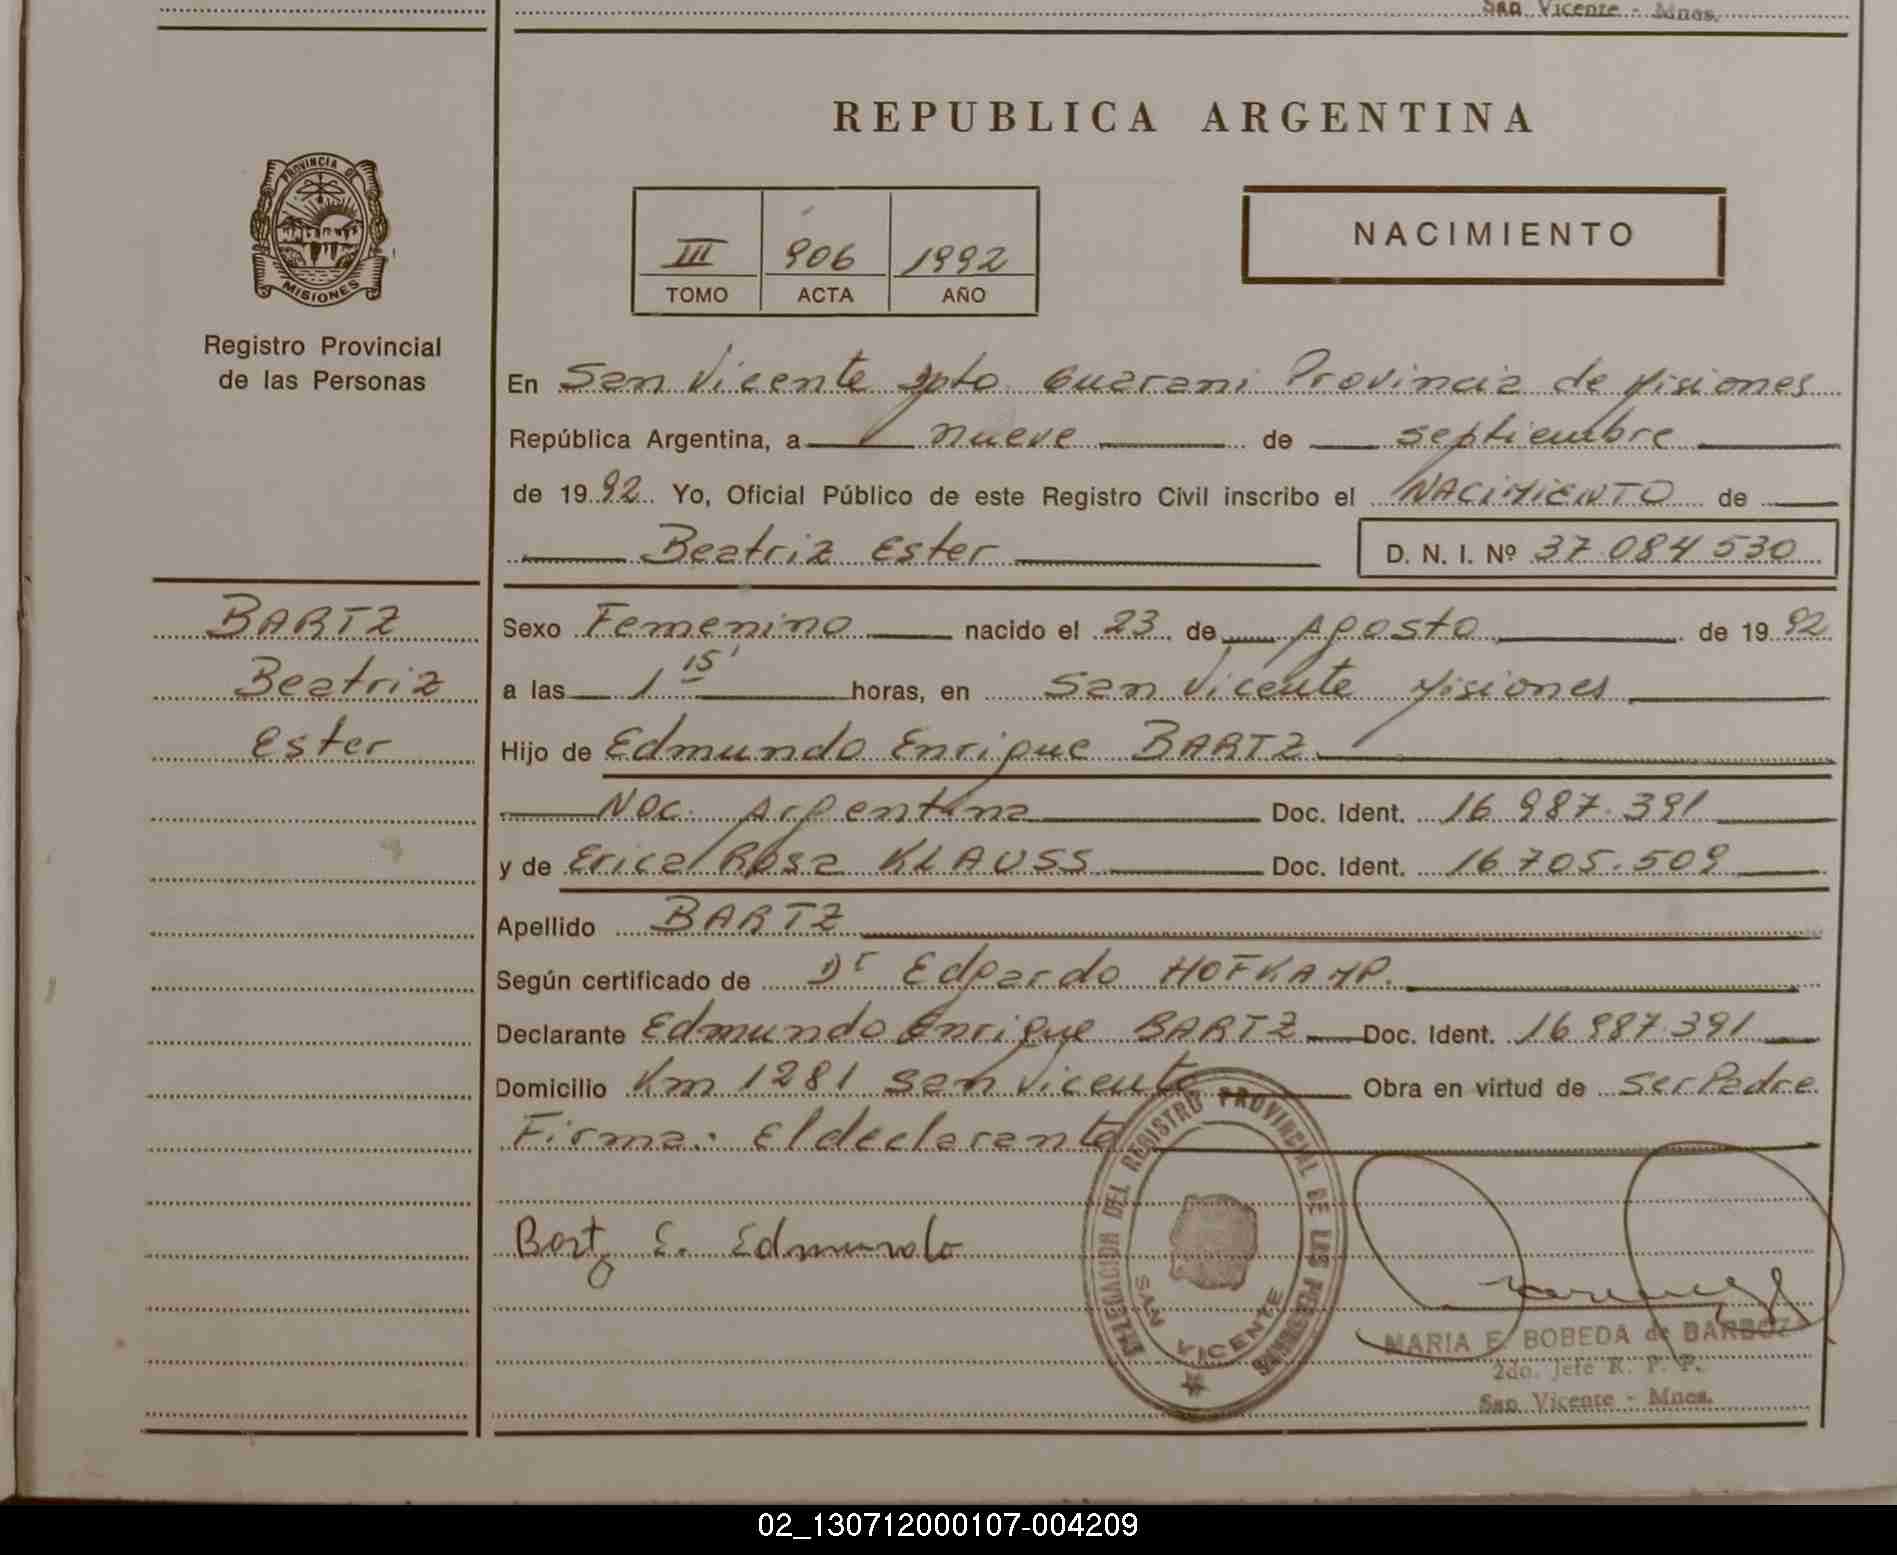 San Vicente - Mnes.
REPUBLICA ARGENTINA
PROVINCIA DE
MISIONES
III 906 1992
TOMO ACTA AÑO
NACIMIENTO
Registro Provincial
de las Personas
En San Vicente Dpto Guarani Provincia de Misiones
República Argentina, a nueve de septiembre
de 1992 Yo, Oficial Público de este Registro Civil inscribo el NACIMIENTO de
Beatriz Ester D. N. I. Nº 37.084 530
BARTZ
Beatriz
Ester
Sexo Femenino nacido el 23 de Agosto de 1992
a las 1 15' horas, en San Vicente Misiones
Hijo de Edmundo Enrique BARTZ
Nac. Argentina Doc. Ident. 16 987.391
y de Erica Rosa KLAUSS Doc. Ident. 16.705.509
Apellido BARTZ
Según certificado de Dr Edgardo HOFKAMP.
Declarante Edmundo Enrique BARTZ Doc. Ident. 16987.391
Domicilio Km 1281 San Vicente Obra en virtud de ser Padre
Firma: El declarante
Bartz E. Edmundo
DELEGACION DEL REGISTRO PROVINCIAL DE LAS PERSONAS
SAN VICENTE
MARIA E. BOBEDA de BARBOZ
2do. Jefe R. P. P.
San Vicente - Mnes.
02_130712000107-004209